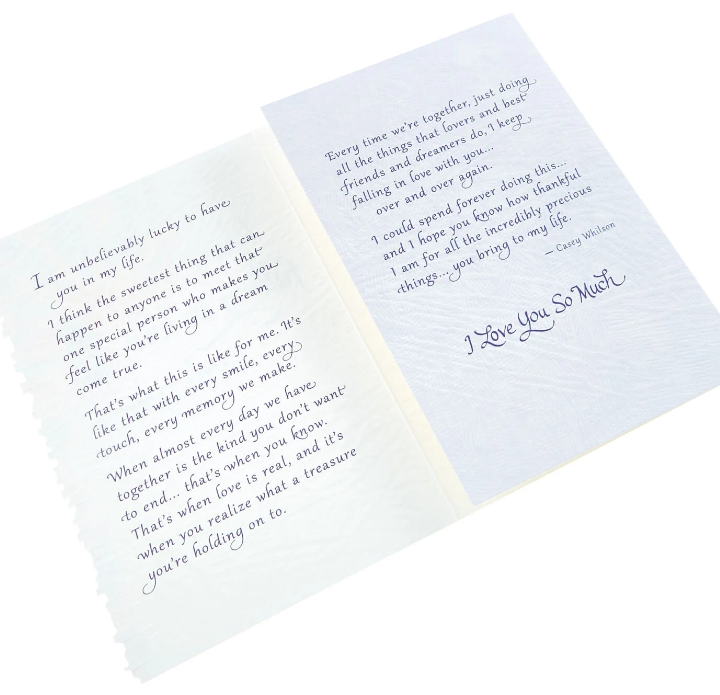 I am unbelievably lucky to have
you in my life.
I think the sweetest thing that can
happen to anyone is to meet that
one special person who makes you
feel like you're living in a dream
come true.
That's what this is like for me. It's
like that with every smile, every
touch, every memory we make.
When almost every day we have
together is the kind you don't want
to end... that's when you know.
That's when love is real, and it's
when you realize what a treasure
you're holding on to.
Every time we're together, just doing
all the things that lovers and best
friends and dreamers do, I keep
falling in love with you...
over and over again.
I could spend forever doing this...
and I hope you know how thankful
I am for all the incredibly precious
things... you bring to my life.
— Casey Whilson
I Love You So Much